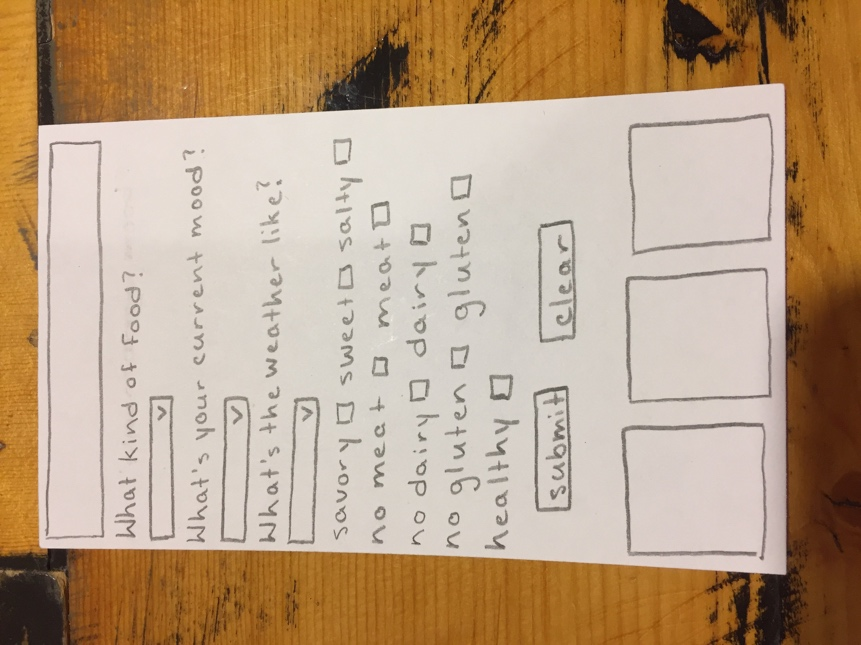 What kind of food?
What's your current mood?
What's the weather like?
savory sweet salty
no meat meat
no dairy dairy
no gluten gluten
healthy
submit clear